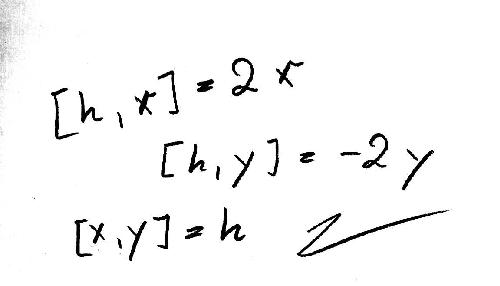 [h,x]=2x
[h,y]=-2y
[x,y]=h